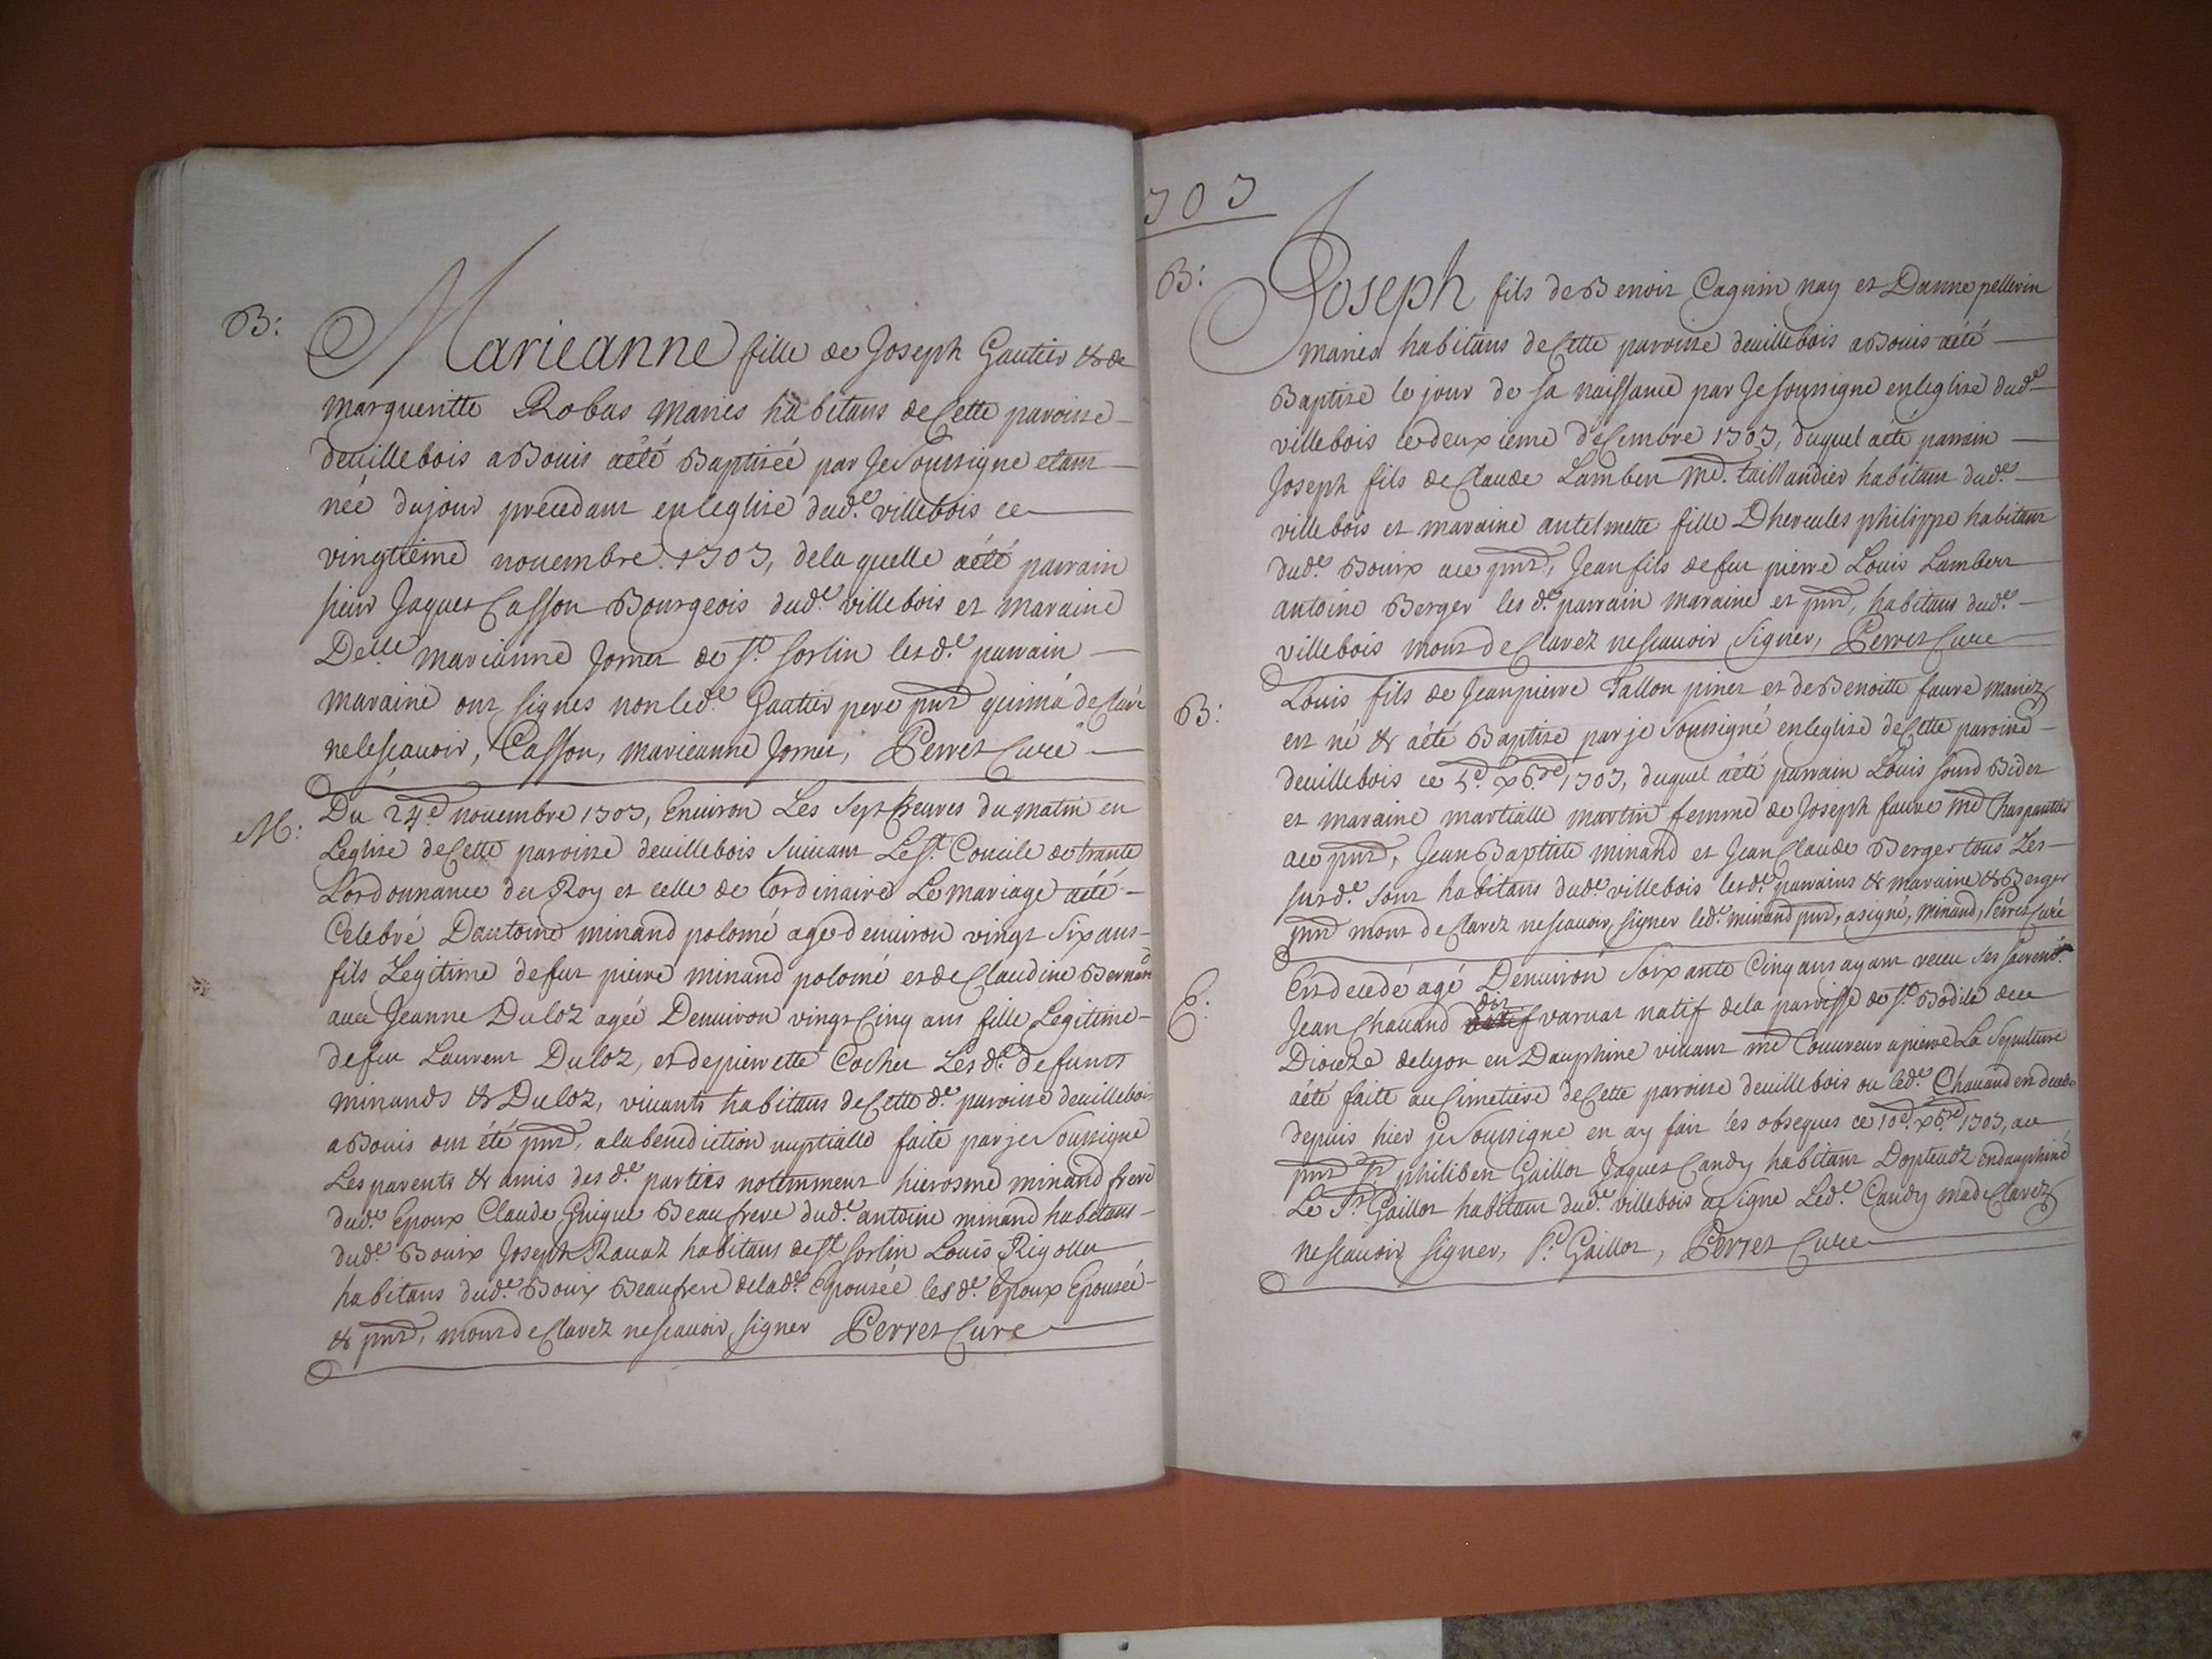 B:
Marieanne fille de Joseph Gautier & de
margueritte Robas maries habitans de Cette paroisse
deuillebois a Bouis aété Baptiseé par Je Soussigne etant
neé dujour precedant en leglise dud.e villebois ce
vingtieme nouembre 1703, de la quelle aété parrain
sieur Jaques Casson Bourgeois dud.e villebois et maraine
De.lle marianne Jomer de St. Sorlin les d.e parrain
maraine ont signes non led.e Gautier pere pnt qui m'a declaré
ne le scauoir, Casson, marieanne Jomer, Perret Cure
M:
Du 24.e nouembre 1703, Enuiron Les Sept heures du matin en
Leglise de Cette paroisse deuillebois Suiuant Le St. Concile de trante
Lordonnance du Roy et celle de Lordinaire Le mariage aété
Celebré Dantoine minand polomé agé denuiron vingt Six ans
fils Legitime de fut pierre minand polomé et de Claudine Bernard
auec Jeanne Duloz ageé Denuiron vingt Cinq ans fille Legitime
de fut Laurent Duloz, et de pierrette Cochet Les d.e defunts
minands & Duloz, viuants habitans de Cette d.e paroisse deuillebois
a Bouis ont été pnts, a la benediction nuptialle faite par je Soussigne
Les parents & amis des d.e parties notemment hierosme minand frere
dud.e Epoux Claude Guigue Beaufrere dud.e antoine minand habitans
dud.e Bouix Joseph Rauaz habitans de St. Sorlin Louis Rigollet
habitans dud.e Bouix Beaufrere de lad.e Epouseé les d.e Epoux Epouseé
& pnts, mont declarez ne scauoir signer Perret Cure
703
B:
Joseph fils de Benoit Cagnin nay et Danne pellerin
maries habitans de Cette paroisse deuillebois a Bouis aété
Baptise le jour de sa naissance par Je soussigne en leglise dud.e
villebois le deuxieme decembre 1703, duquel aété parrain
Joseph fils de Claude Lambert md. taillandier habitant dud.e
villebois et maraine antelmette fille Dhercules philippe habitant
dud.e Bouix ace pnts, Jean fils de fut pierre Louis Lambert
antoine Berger les d.e parrain maraine et pnts, habitans dud.e
villebois mont declarez ne scauoir signer, Perret Cure
B:
Louis fils de Jean pierre Tallon pinet et de Benoitte faure mariez
est né & aété Baptise par je Soussigné en leglise de Cette paroisse
deuillebois ce 5.e xbre 1703, duquel aété parrain Louis Sourd Bidet
et maraine martialle martin femme de Joseph faure md Charpantier
ace pnts, Jean Baptiste minand et Jean Claude Berger tous Les
susd.e sont habitans dud.e villebois lesd.e parrains & maraine & Berger
pnts mont declarez ne scauoir signer led.e minand pnt, a signé, minand, Perret Curé
E:
Est decedé agé Denuiron Soixante Cinq ans ayant receu ses sacremt.
Jean Chauand dit varnat natif de la paroisse de St. Bodile de ce
Dioceze de lyon en Dauphine viuant md Couureur a pierre La Sepulture
aété faite au Cimetiere de Cette paroisse deuillebois ou led.e Chauand est decedé
depuis hier je Soussigne en ay fait les obseques ce 10.e xbre 1703, au
pnts Sr. philibert Gaillot Jaques Candy habitant Dopteuoz en dauphiné
Le Sr. Gaillot habitant dud.e villebois a signe Led.e Candy ma declarez
ne scauoir signer, P. Gaillot, Perret Cure